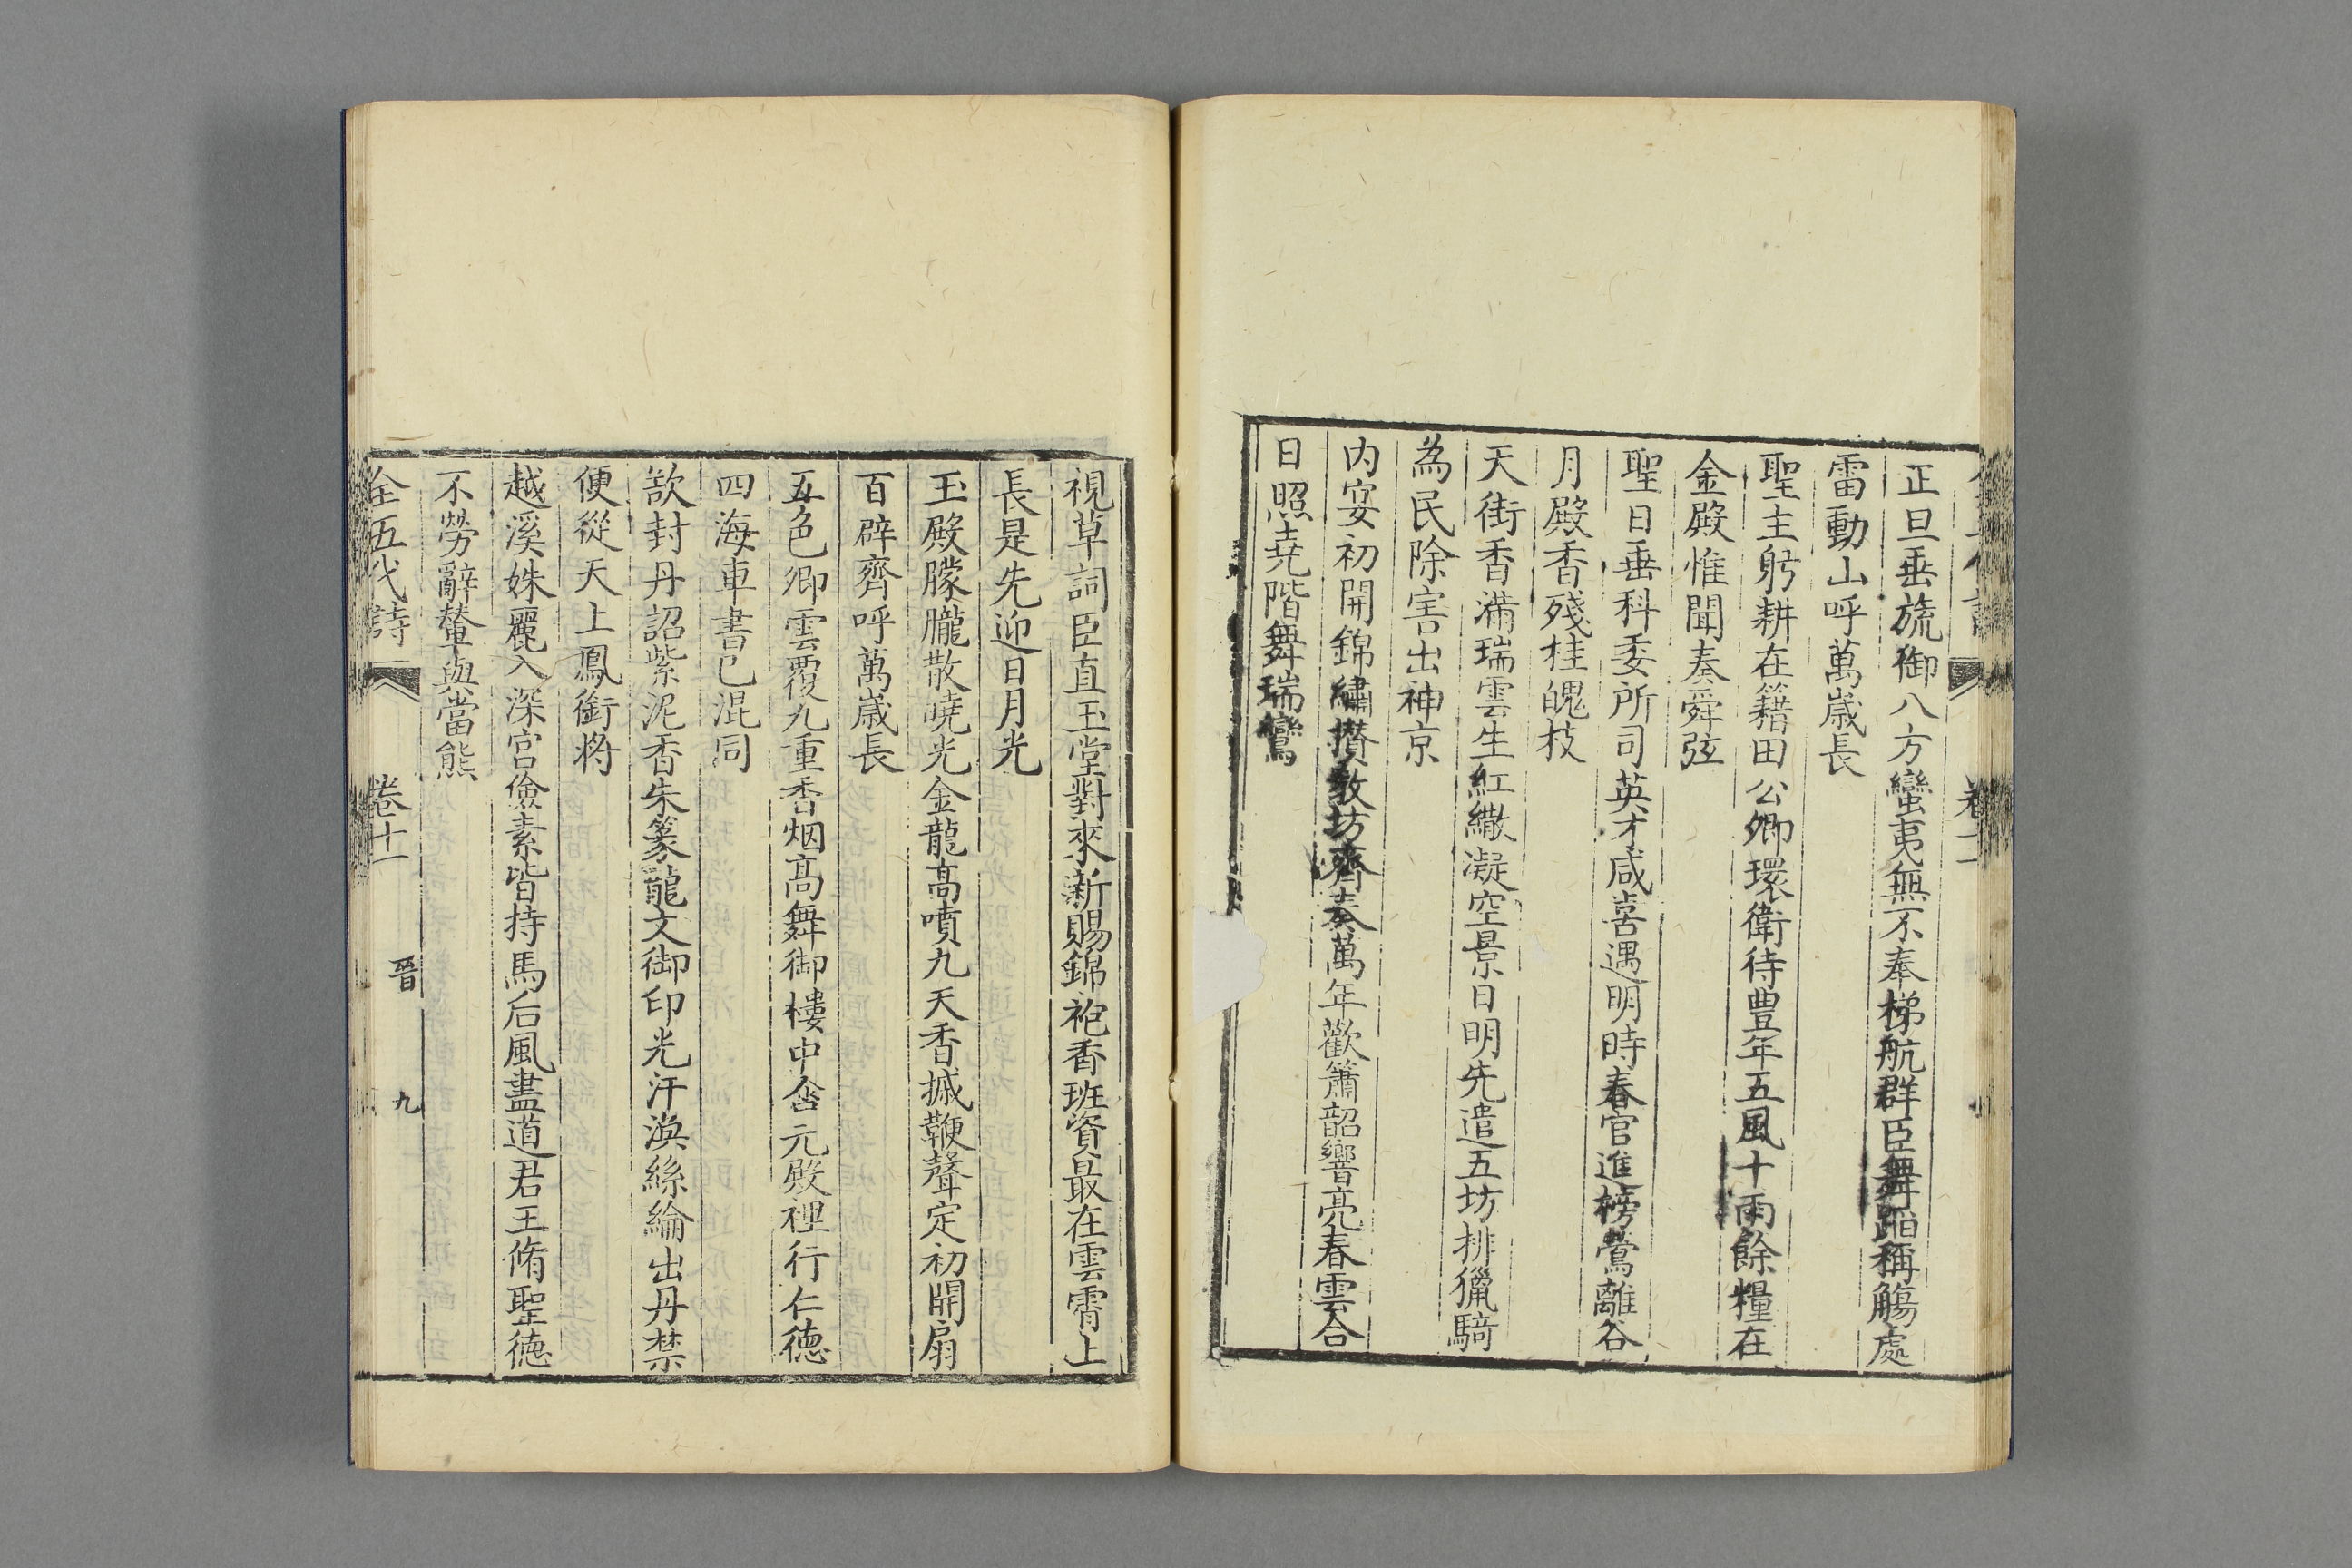 正旦垂旒御八方蠻夷無不奉梯航群臣舞蹈稱觴處
雷動山呼萬歲長
聖主躬耕在籍田公卿環衛待豊年五風十雨餘糧在
金殿惟聞奏舜弦
聖日垂科委所司英才咸喜遇明時春官進榜鶯離谷
月殿香殘桂魄枝
天街香滿瑞雲生紅繖凝空景日明先遣五坊排獵騎
為民除害出神京
内宴初開錦繡攅教坊齊奏萬年歡簫韶響亮春雲合
日照堯階舞瑞鸞
視草詞臣直玉堂對來新賜錦袍香班資最在雲霄上
長是先迎日月光
玉殿朦朧散曉光金龍髙噴九天香摵鞭聲定初開扇
百辟齊呼萬歲長
五色卿雲覆九重香烟髙舞御樓中含元殿裡行仁德
四海車書已混同
歘封丹詔紫泥香朱篆龍文御印光汗渙絲綸出丹禁
便從天上鳳銜將
越溪姝麗入深宮儉素皆持馬后風盡道君王脩聖德
不勞辭輦與當熊
全五代詩
卷十一
晉
九